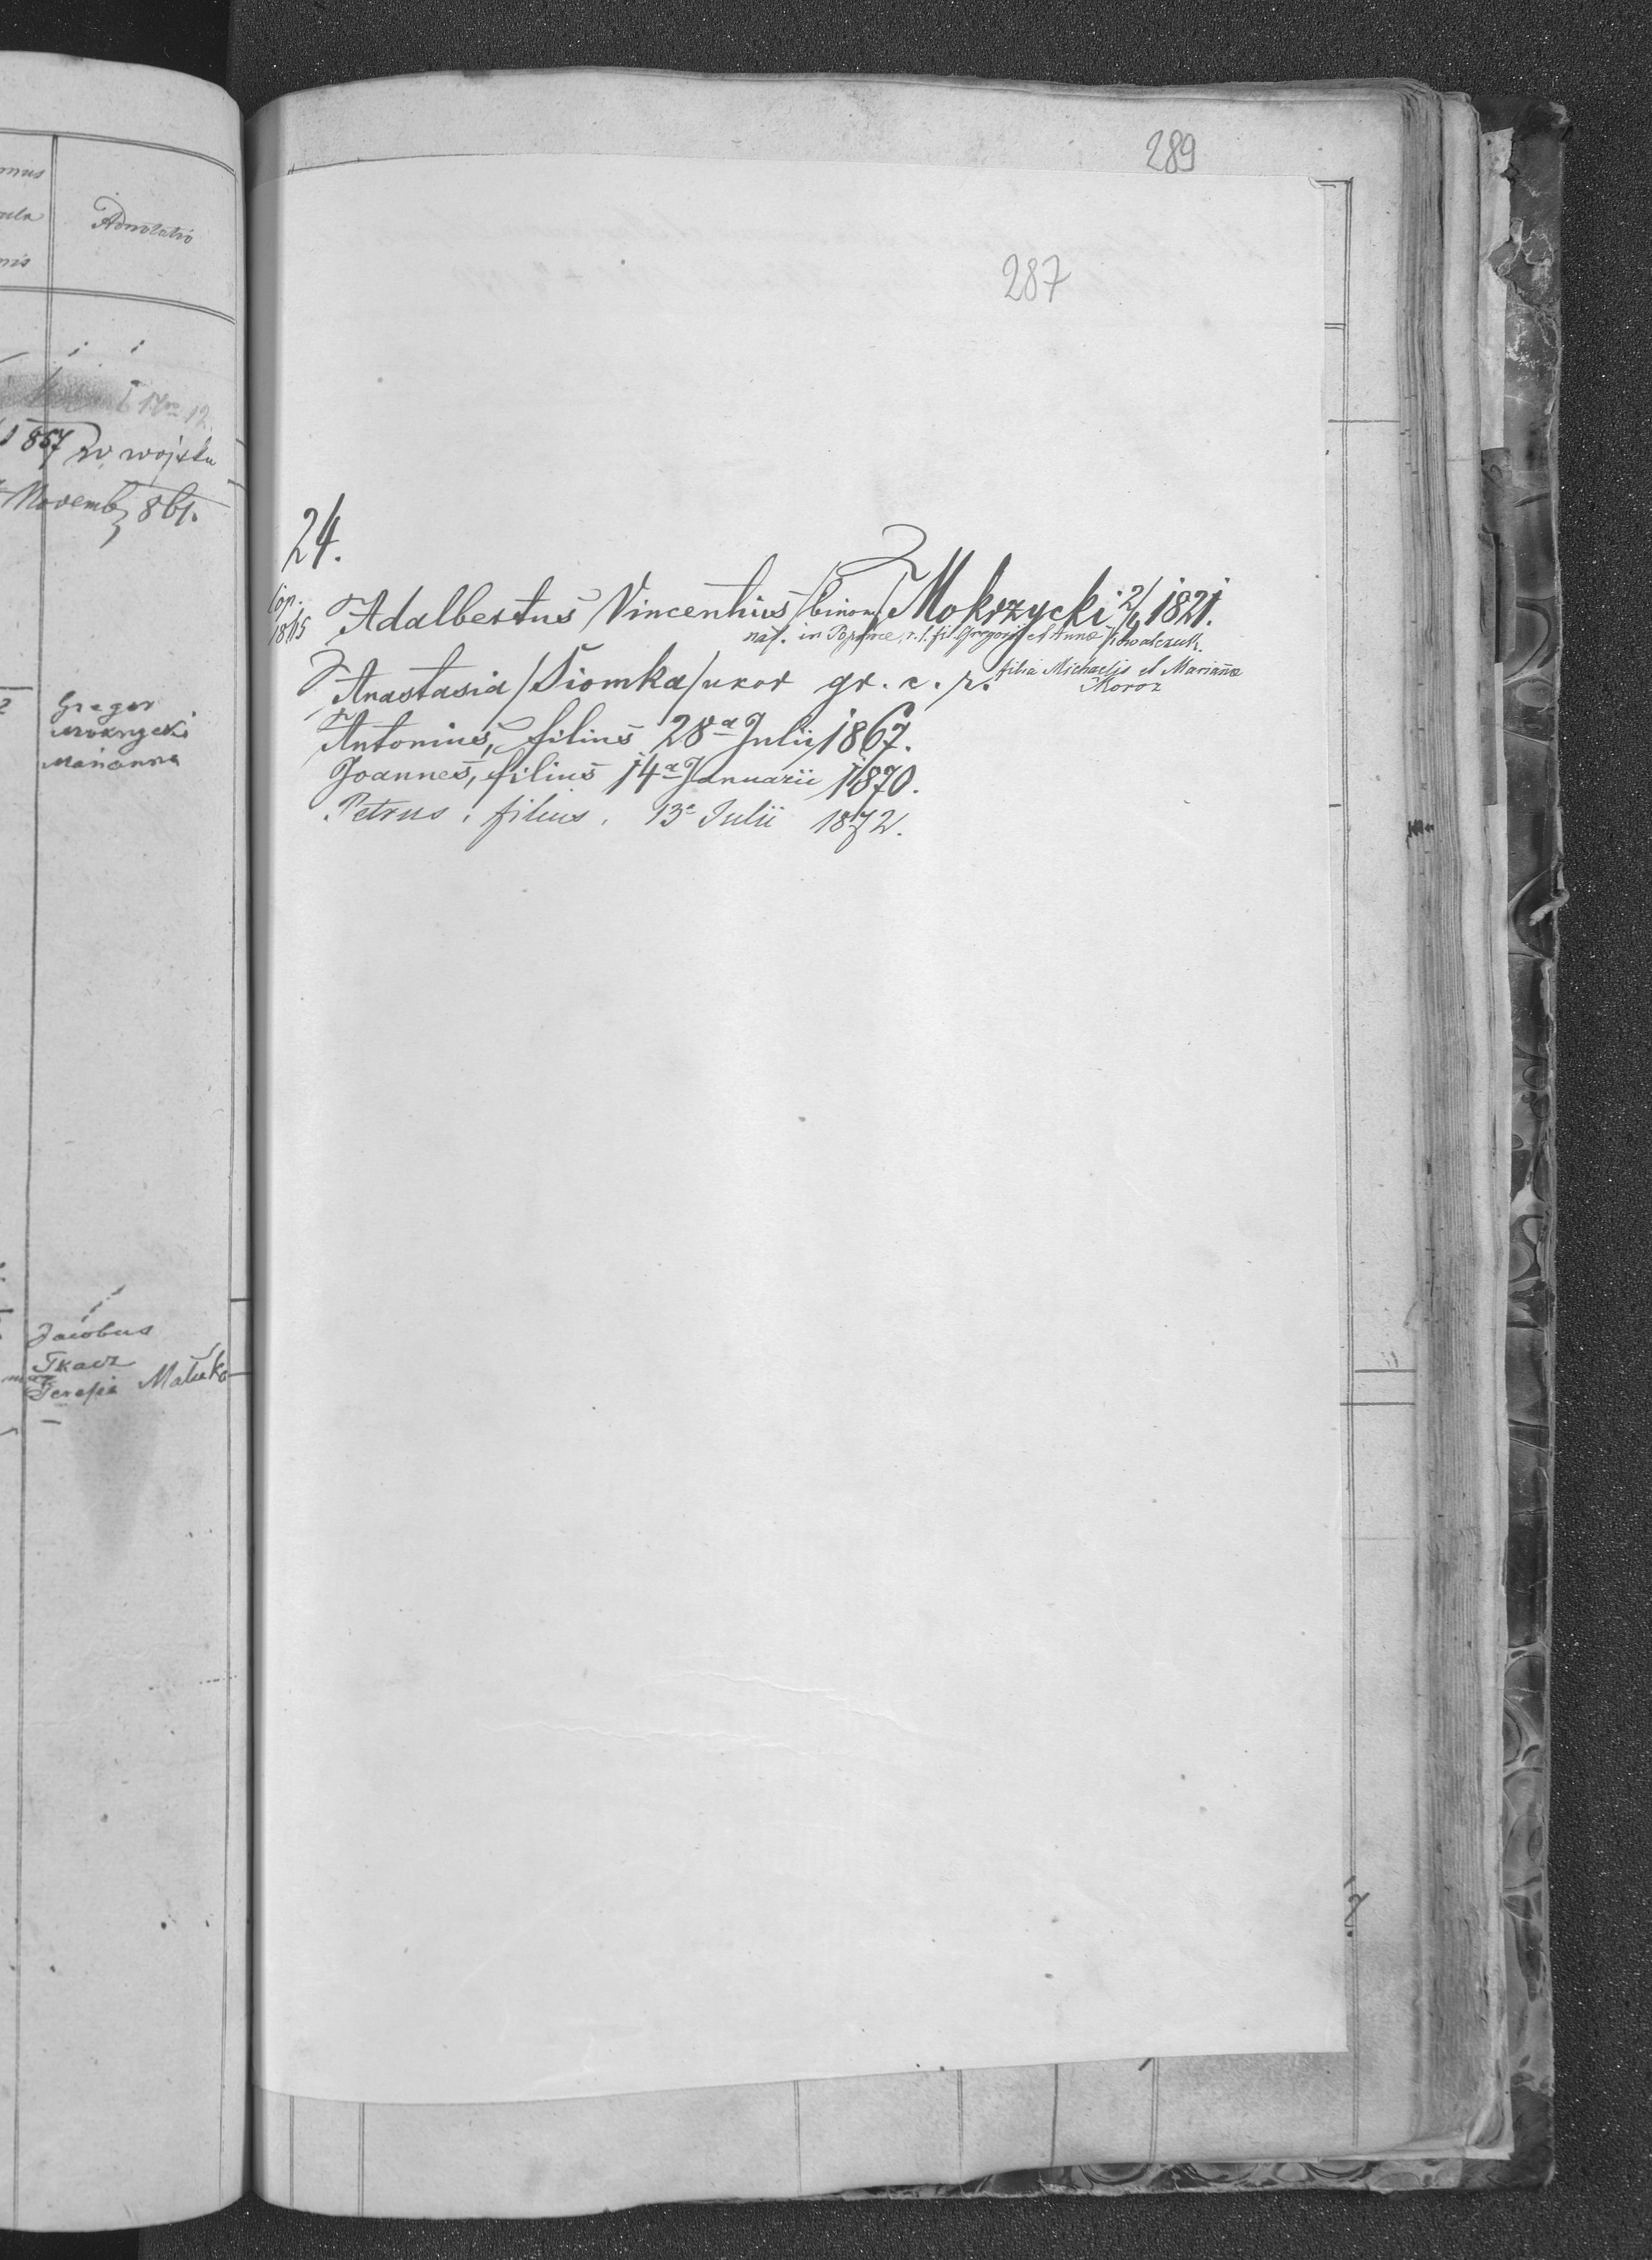 Adnotatio
1867 w wojsku
Novemb 861.
Gregor
Mokrzycki
Marianna
Jacobus
Tkacz
Teresia Matuk
289
287
24.
Cop. 1865 Adalbertus Vincentius /binom/ Mokrzycki 2/4 1821.
nat. in r. l. fil. Gregorii et Annæ Kowalczuk.
Anastasia /Siomka/ uxor gr. c. r. filia Michaelis et Mariannæ
Moroz
Antonius, filius 28a Julii 1867.
Joannes, filius 14a Januarii 1870.
Petrus, filius, 13a Julii 1872.